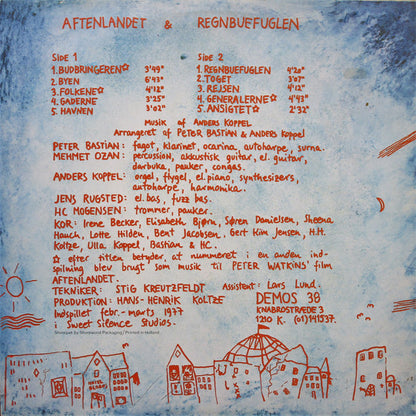 AFTENLANDET & REGNBUEFUGLEN
Side 1
1. BUDBRINGEREN☆ 3'49"
2. BYEN 6'43"
3. FOLKENE☆ 4'12"
4. GADERNE 3'25"
5. HAVNEN 3'02"
Side 2
1. REGNBUEFUGLEN 4'20"
2. TOGET 3'07"
3. REJSEN 4'12"
4. GENERALERNE☆ 4'43"
5. ANSIGTET☆ 2'32"
Musik af ANDERS KOPPEL
Arrangeret af PETER BASTIAN & ANDERS KOPPEL
PETER BASTIAN: fagot, klarinet, ocarina, autoharpe, zurna.
MEHMET OZAN: percussion, akkustisk guitar, el. guitar,
darbuka, pauker, congas.
ANDERS KOPPEL: orgel, flygel, el. piano, synthesizers,
autoharpe, harmonika.
JENS RUGSTED: el. bas, fuzz bas.
HC MOGENSEN: trommer, pauker.
KOR: Irene Becker, Elisabeth Bjørn, Søren Danielsen, Sheena
Hauch, Lotte Hilden, Bent Jacobsen, Gert Kim Jensen, H.H.
Koltze, Ulla Koppel, Bastian & HC.
☆ efter titlen betyder, at nummeret i en anden ind-
spilning blev brugt som musik til PETER WATKINS' film
AFTENLANDET.
TEKNIKER: STIG KREUTZFELDT Assistent: Lars Lund.
PRODUKTION: HANS-HENRIK KOLTZE
Indspillet febr.-marts 1977
i Sweet Silence Studios.
DEMOS 38
KNABROSTRÆDE 3
1210 K. (01) 141537.
Shorepak by Shorewood Packaging / Printed in Holland